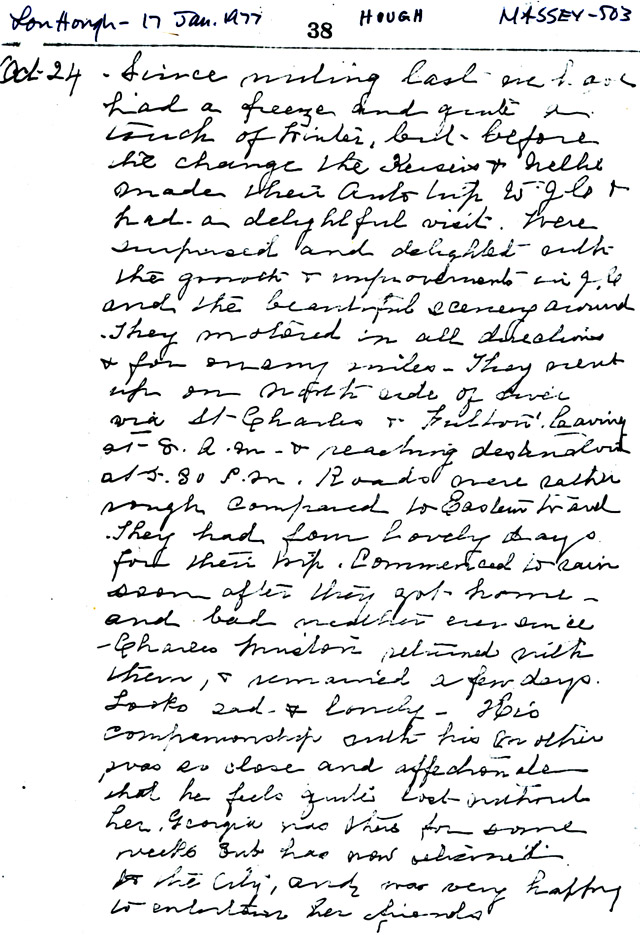 Lon Hough - 17 Jan. 1977 HOUGH MASSEY-503
38
Oct-24 - Since writing last we have
had a freeze and quite a
touch of Winter, but - before
the change the Keisers & Nellie
made their Auto trip to J.C &
had - a delightful visit. Were
surprised and delighted with
the growth & improvements in J.C
and the beautiful scenery around
. They motored in all directions
& for many miles - They went
up on north side of river
via St-Charles & Fulton. leaving
at - 8. A.M - & reaching destination
at 5.30 P.M. Roads were rather
rough compared to Eastern travel
. They had four lovely days
for their trip. Commenced to rain
soon after they got home -
and bad weather ever since
- Charles returned with
them, & remained a few days.
Looks sad - & lonely - His
companionship with his Mother
was so close and affectionate
that he feels quite lost without
her. Georgia was there for some
weeks but has now returned
to the City, and was very happy
to entertain her friends